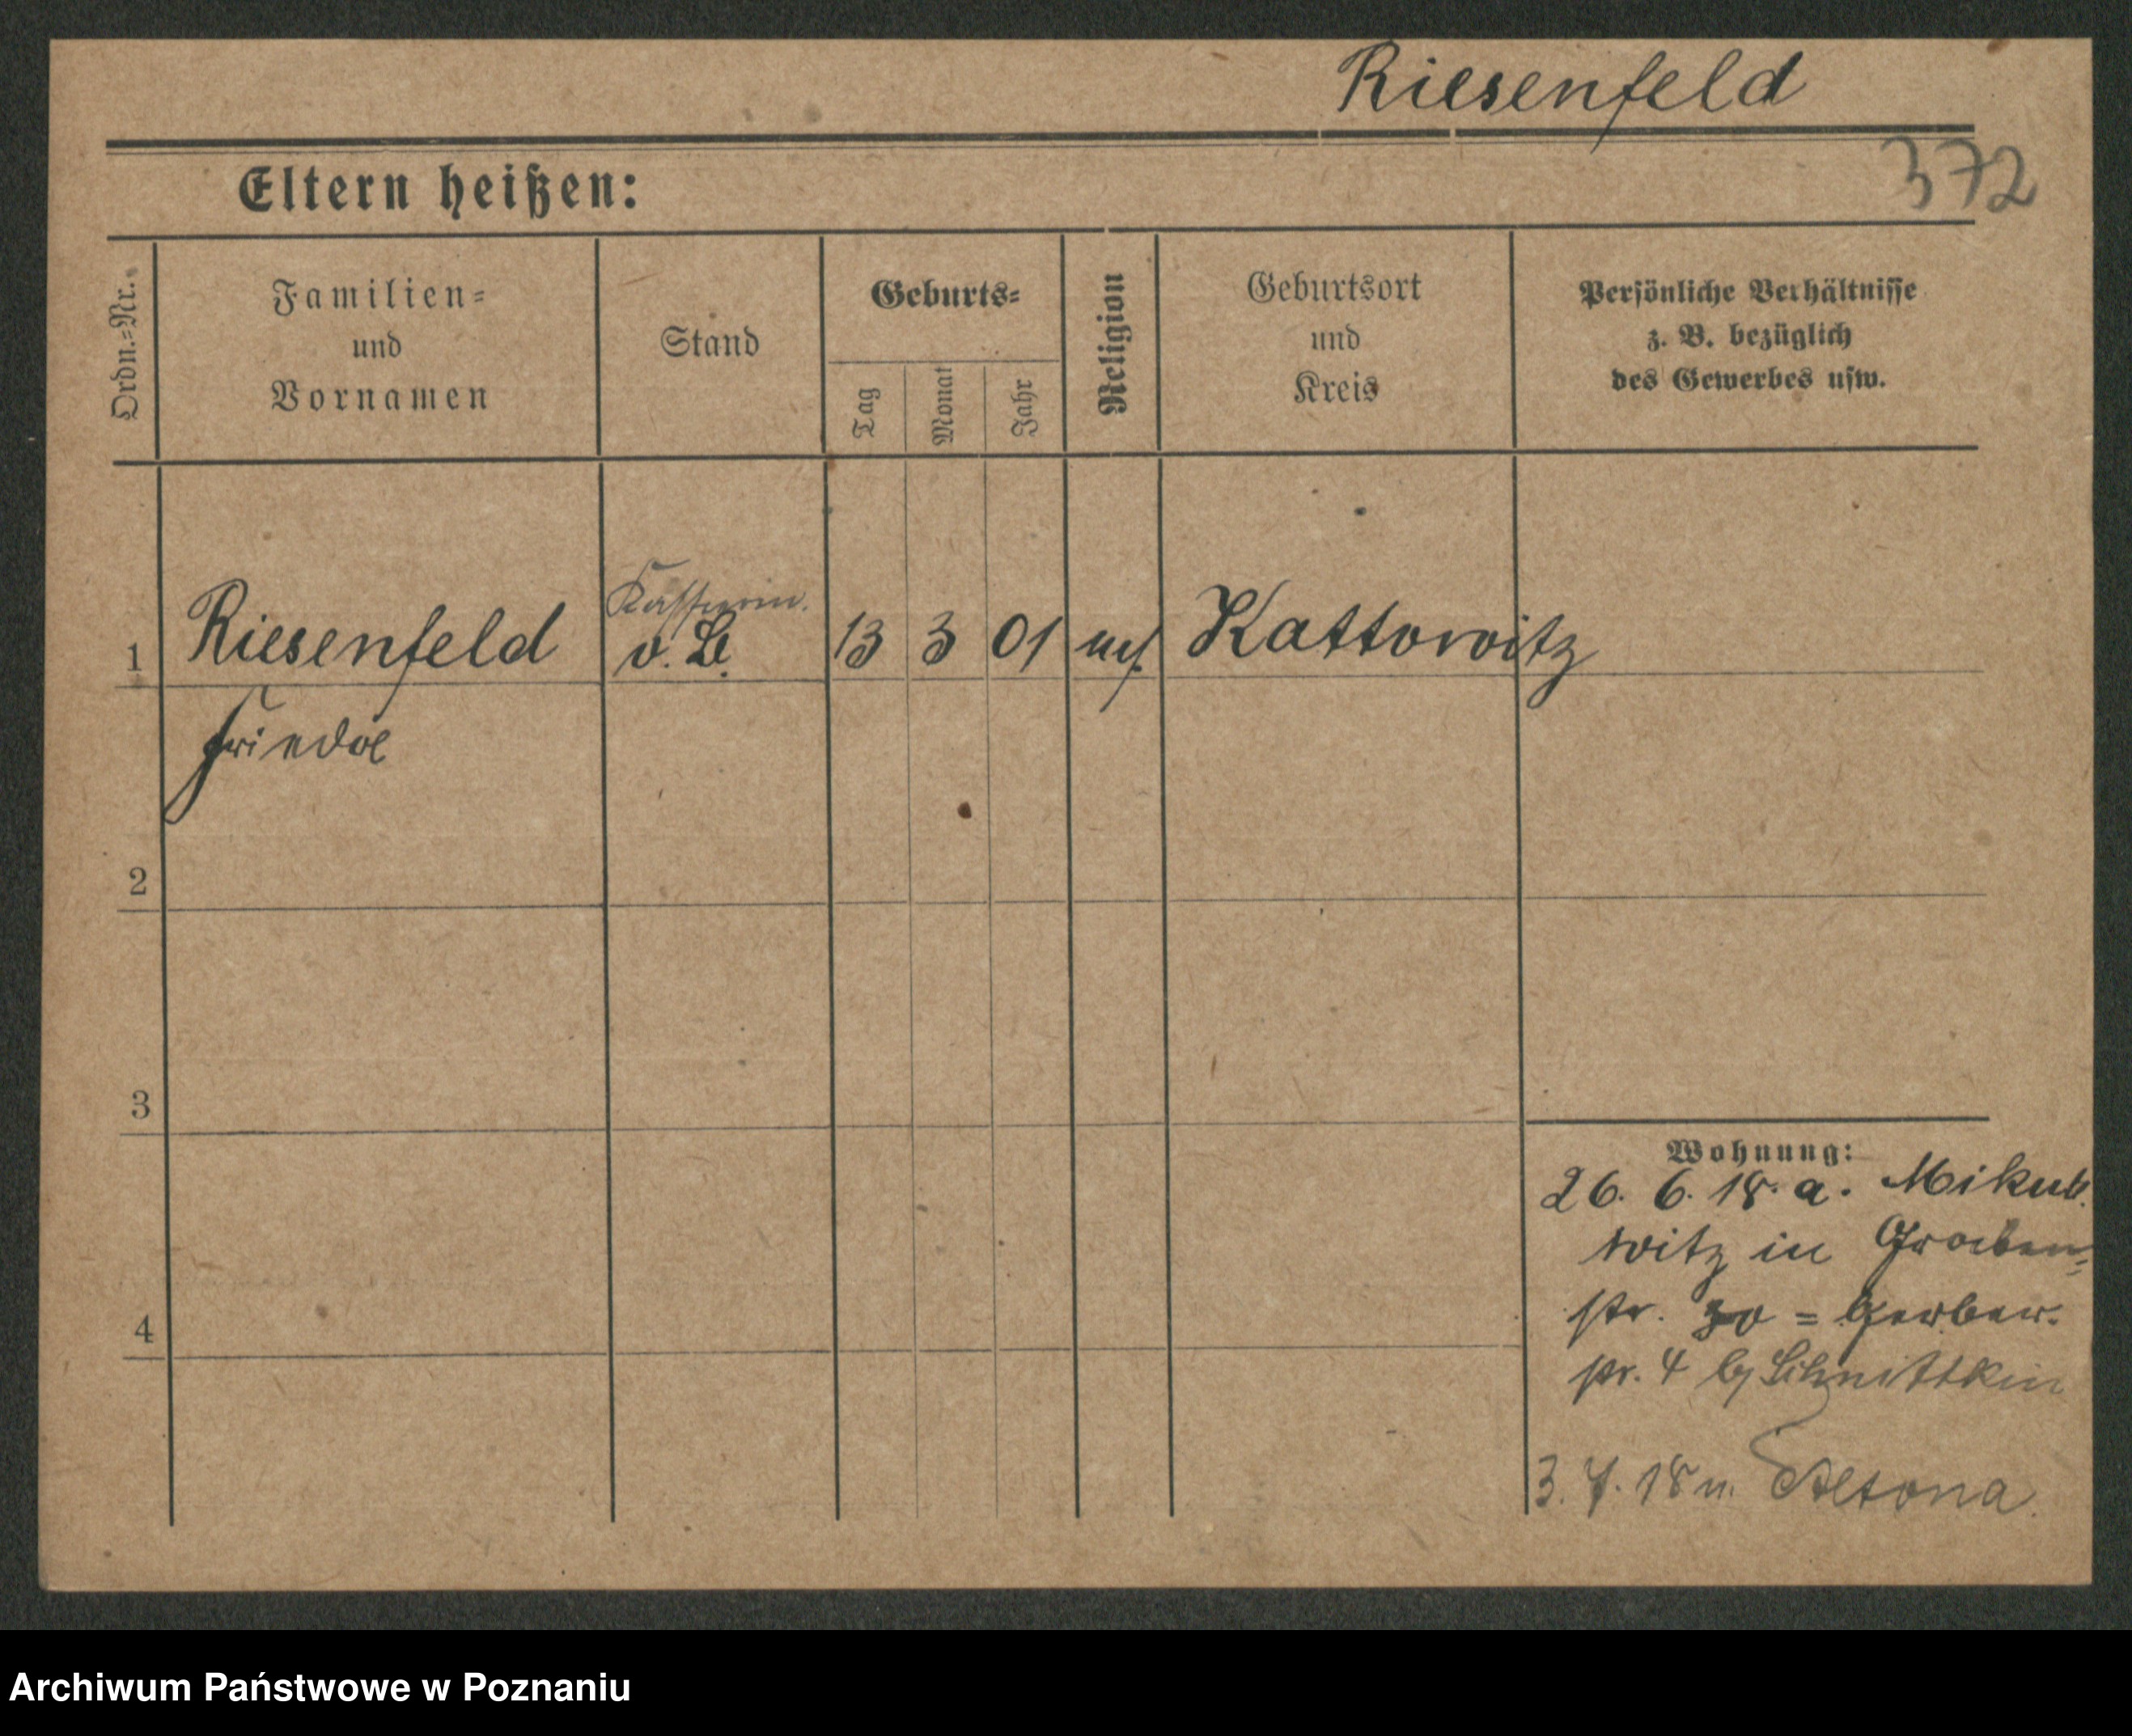 Riesenfeld
372
Eltern heißen:
Ordn.-Nr.
Familien-
und
Vornamen
Stand
Geburts-
Tag
Monat
Jahr
Religion
Geburtsort
und
Kreis
Persönliche Verhältnisse
z. B. bezüglich
des Gewerbes usw.
1 Riesenfeld v. 13 3 01 Kattowitz
Friedel
2
3
4
Wohnung:
26. 6. 18. a. Mikul
witz in Graben-
str. 30 = Gerber-
str. 4 by Schnittkin
3. 7. 18 n. Altona.
Archiwum Państwowe w Poznaniu